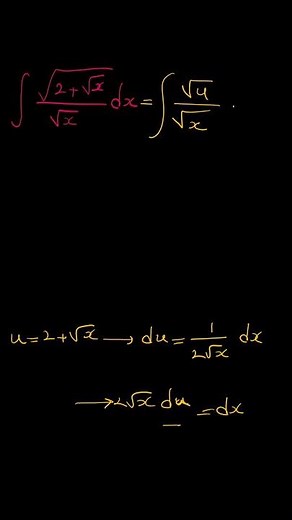 ∫ √(2+√x)/√x dx = ∫ √u/√x .
u=2+√x → du = 1/(2√x) dx
→ 2√x du = dx